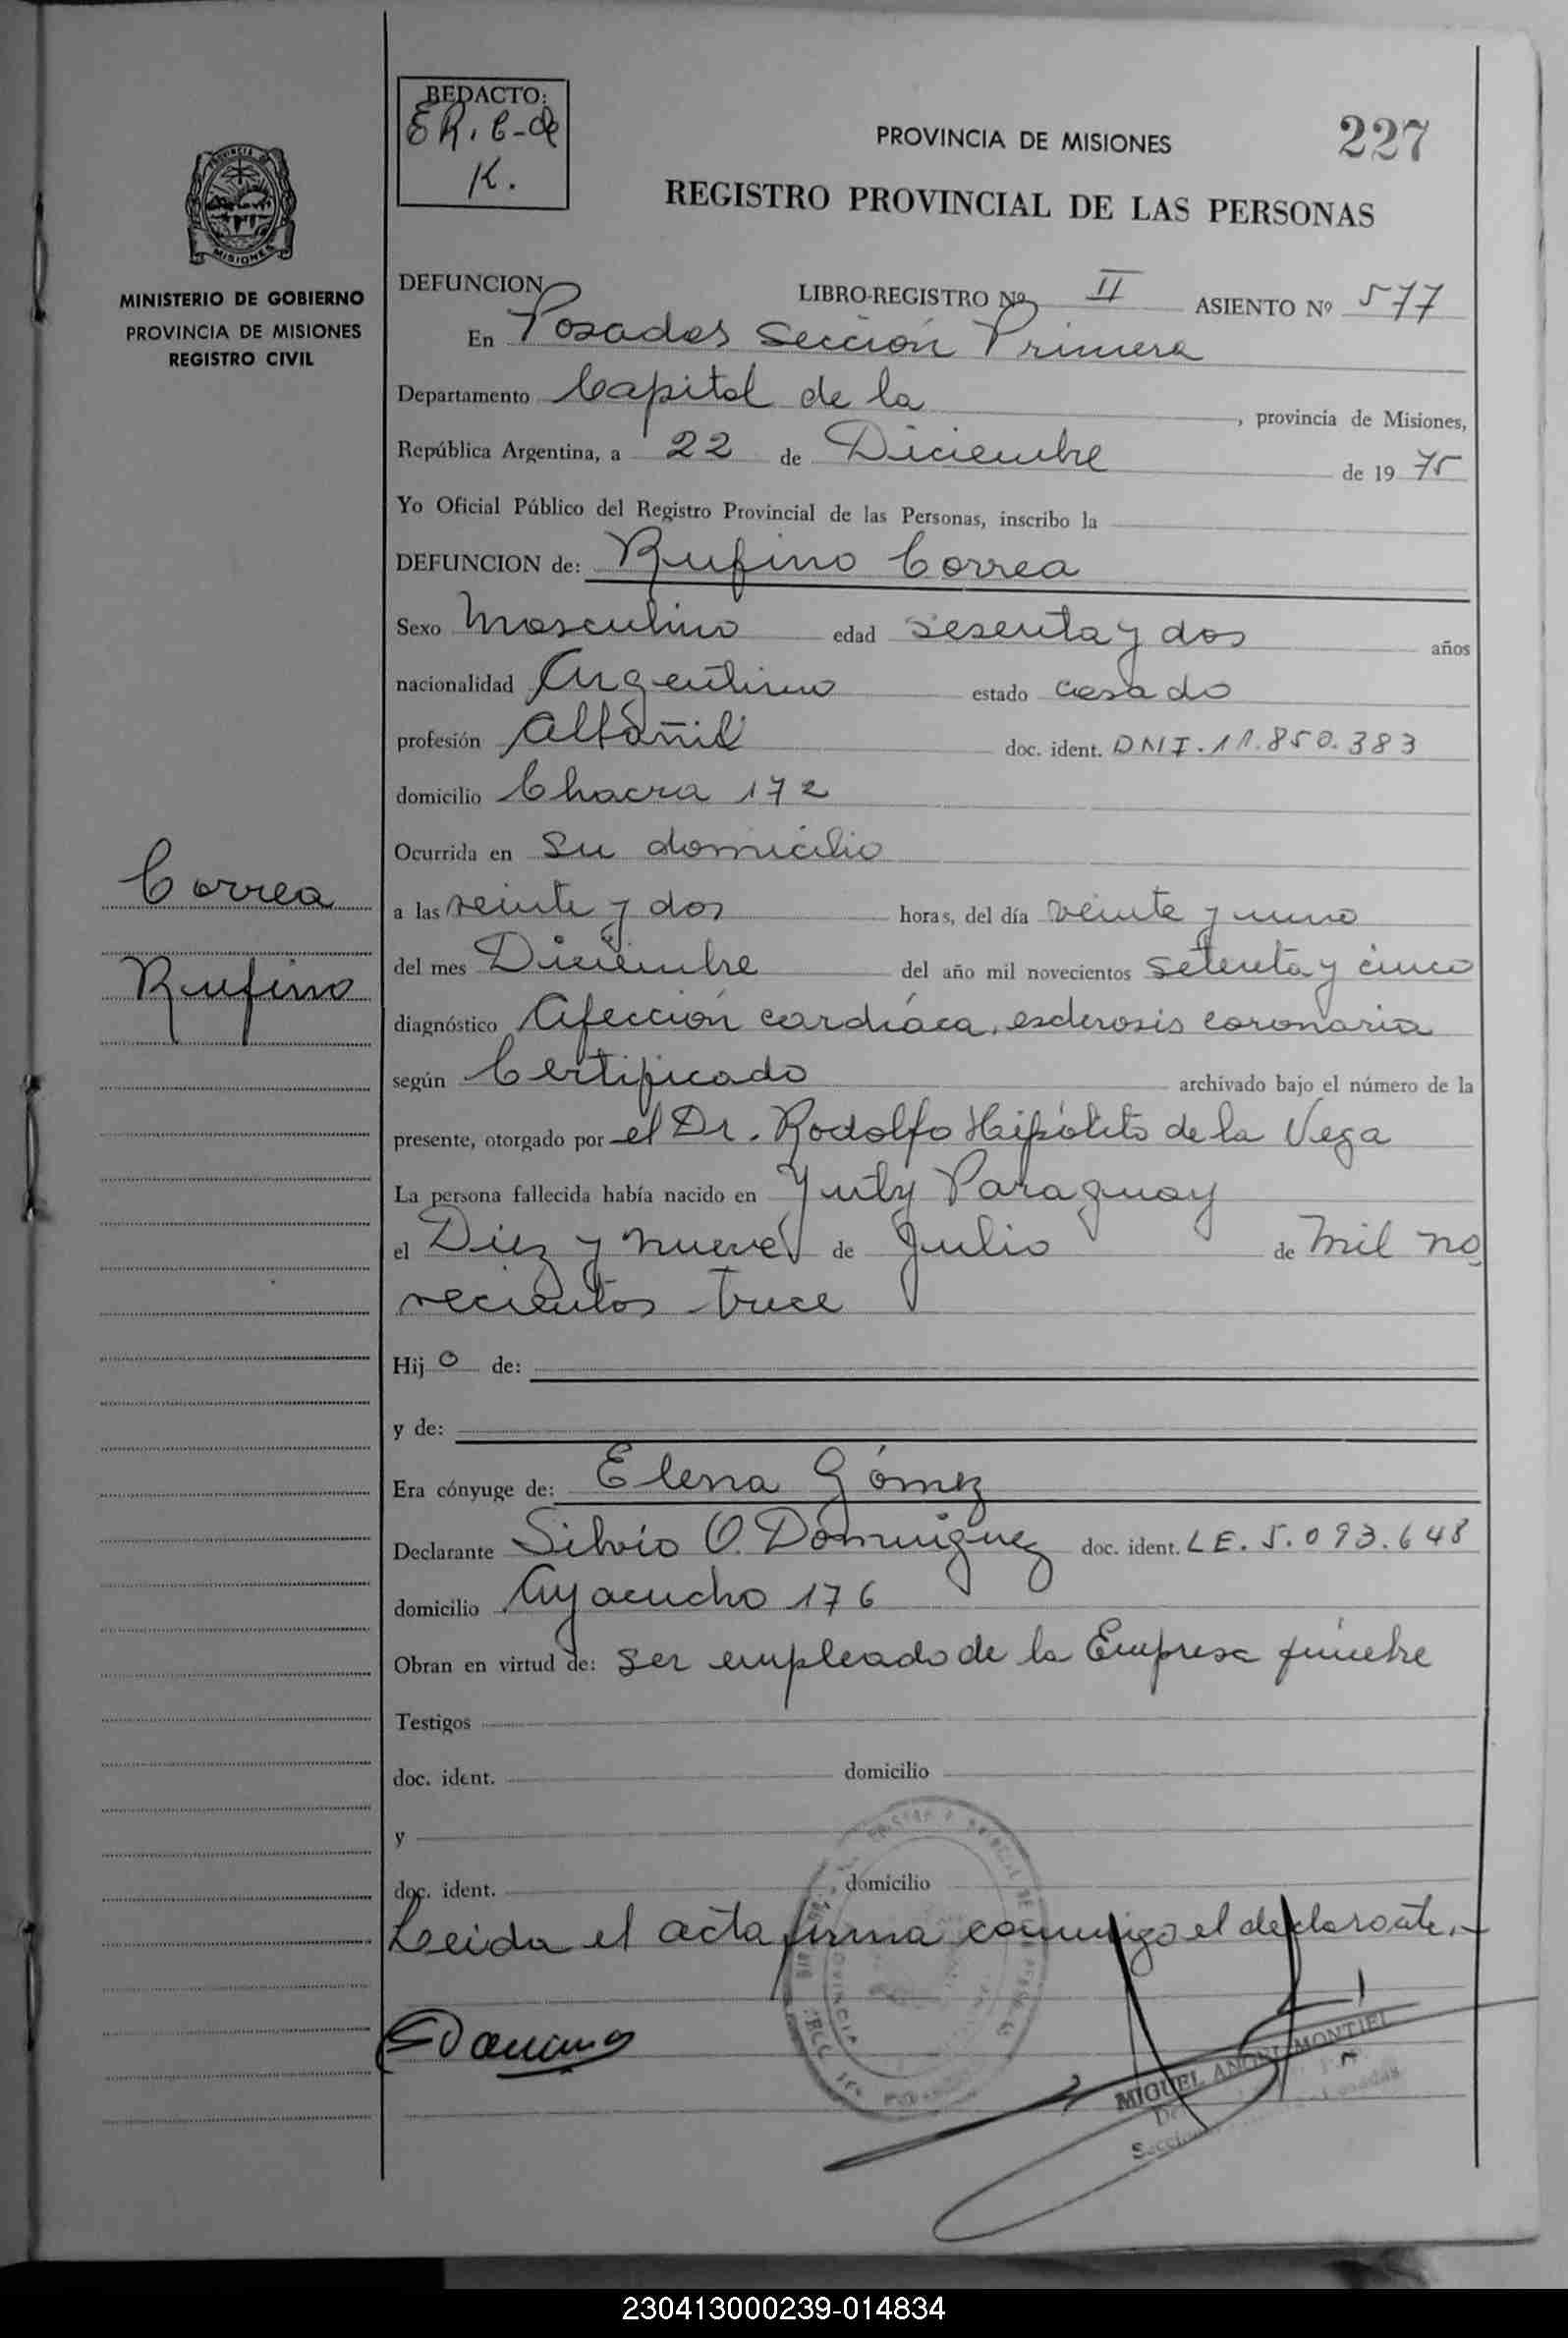 REDACTO:
E R. C- de
K.
PROVINCIA DE MISIONES
227
REGISTRO PROVINCIAL DE LAS PERSONAS
MISIONES
MINISTERIO DE GOBIERNO
PROVINCIA DE MISIONES
REGISTRO CIVIL
DEFUNCION
LIBRO-REGISTRO Nº II ASIENTO Nº 577
En Posadas Sección Primera
Departamento Capital de la , provincia de Misiones,
República Argentina, a 22 de Diciembre de 19 75
Yo Oficial Público del Registro Provincial de las Personas, inscribo la
DEFUNCION de: Rufino Correa
Sexo Masculino edad sesenta y dos años
nacionalidad Argentino estado casado
profesión Albañil doc. ident. DNI. 11.850.383
domicilio Chacra 172
Ocurrida en su domicilio
Correa
Rufino
a las veinte y dos horas, del día veinte y uno
del mes Diciembre del año mil novecientos setenta y cinco
diagnóstico Afección cardíaca, esclerosis coronaria
según Certificado archivado bajo el número de la
presente, otorgado por el Dr. Rodolfo Hipólito de la Vega
La persona fallecida había nacido en Yuty Paraguay
el Diez y nueve de Julio de mil no
vecientos trece
Hij o de:
y de:
Era cónyuge de: Elena Gómez
Declarante Silvio O. Dominguez doc. ident. LE. 5.093.648
domicilio Ayacucho 176
Obran en virtud de: ser empleado de la Empresa fúnebre
Testigos
doc. ident. domicilio
y
doc. ident. domicilio
Leida el acta firma conmigo el declarante.-
MIGUEL ANGEL MONTIEL
230413000239-014834